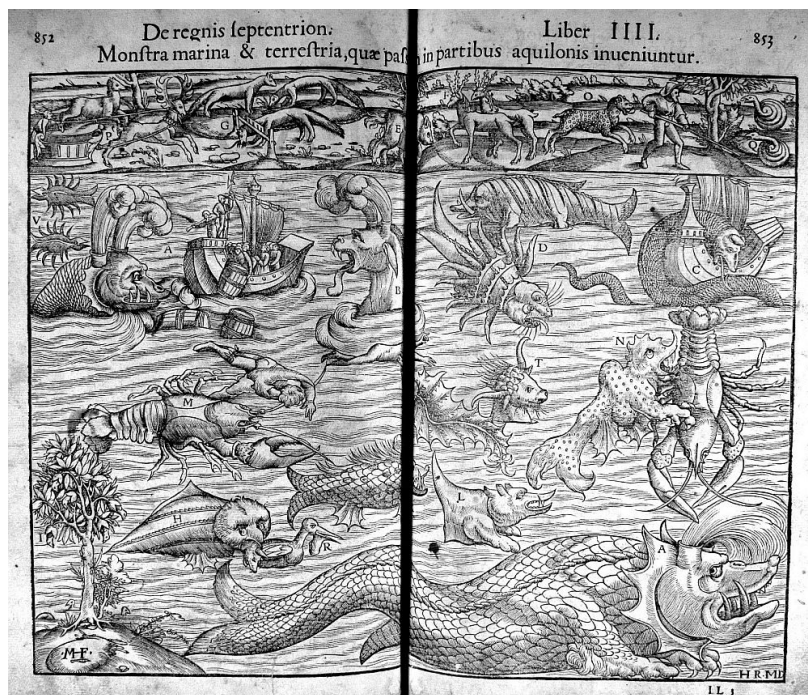 852
De regnis ſeptentrion.
Liber IIII.
853
Monſtra marina & terreſtria, quæ paſſ in partibus aquilonis inueniuntur.
P
G
E
O
Q
V
A
B
D
C
M
T
N
H
R
L
I
A
MHF.
H R. MD
LL